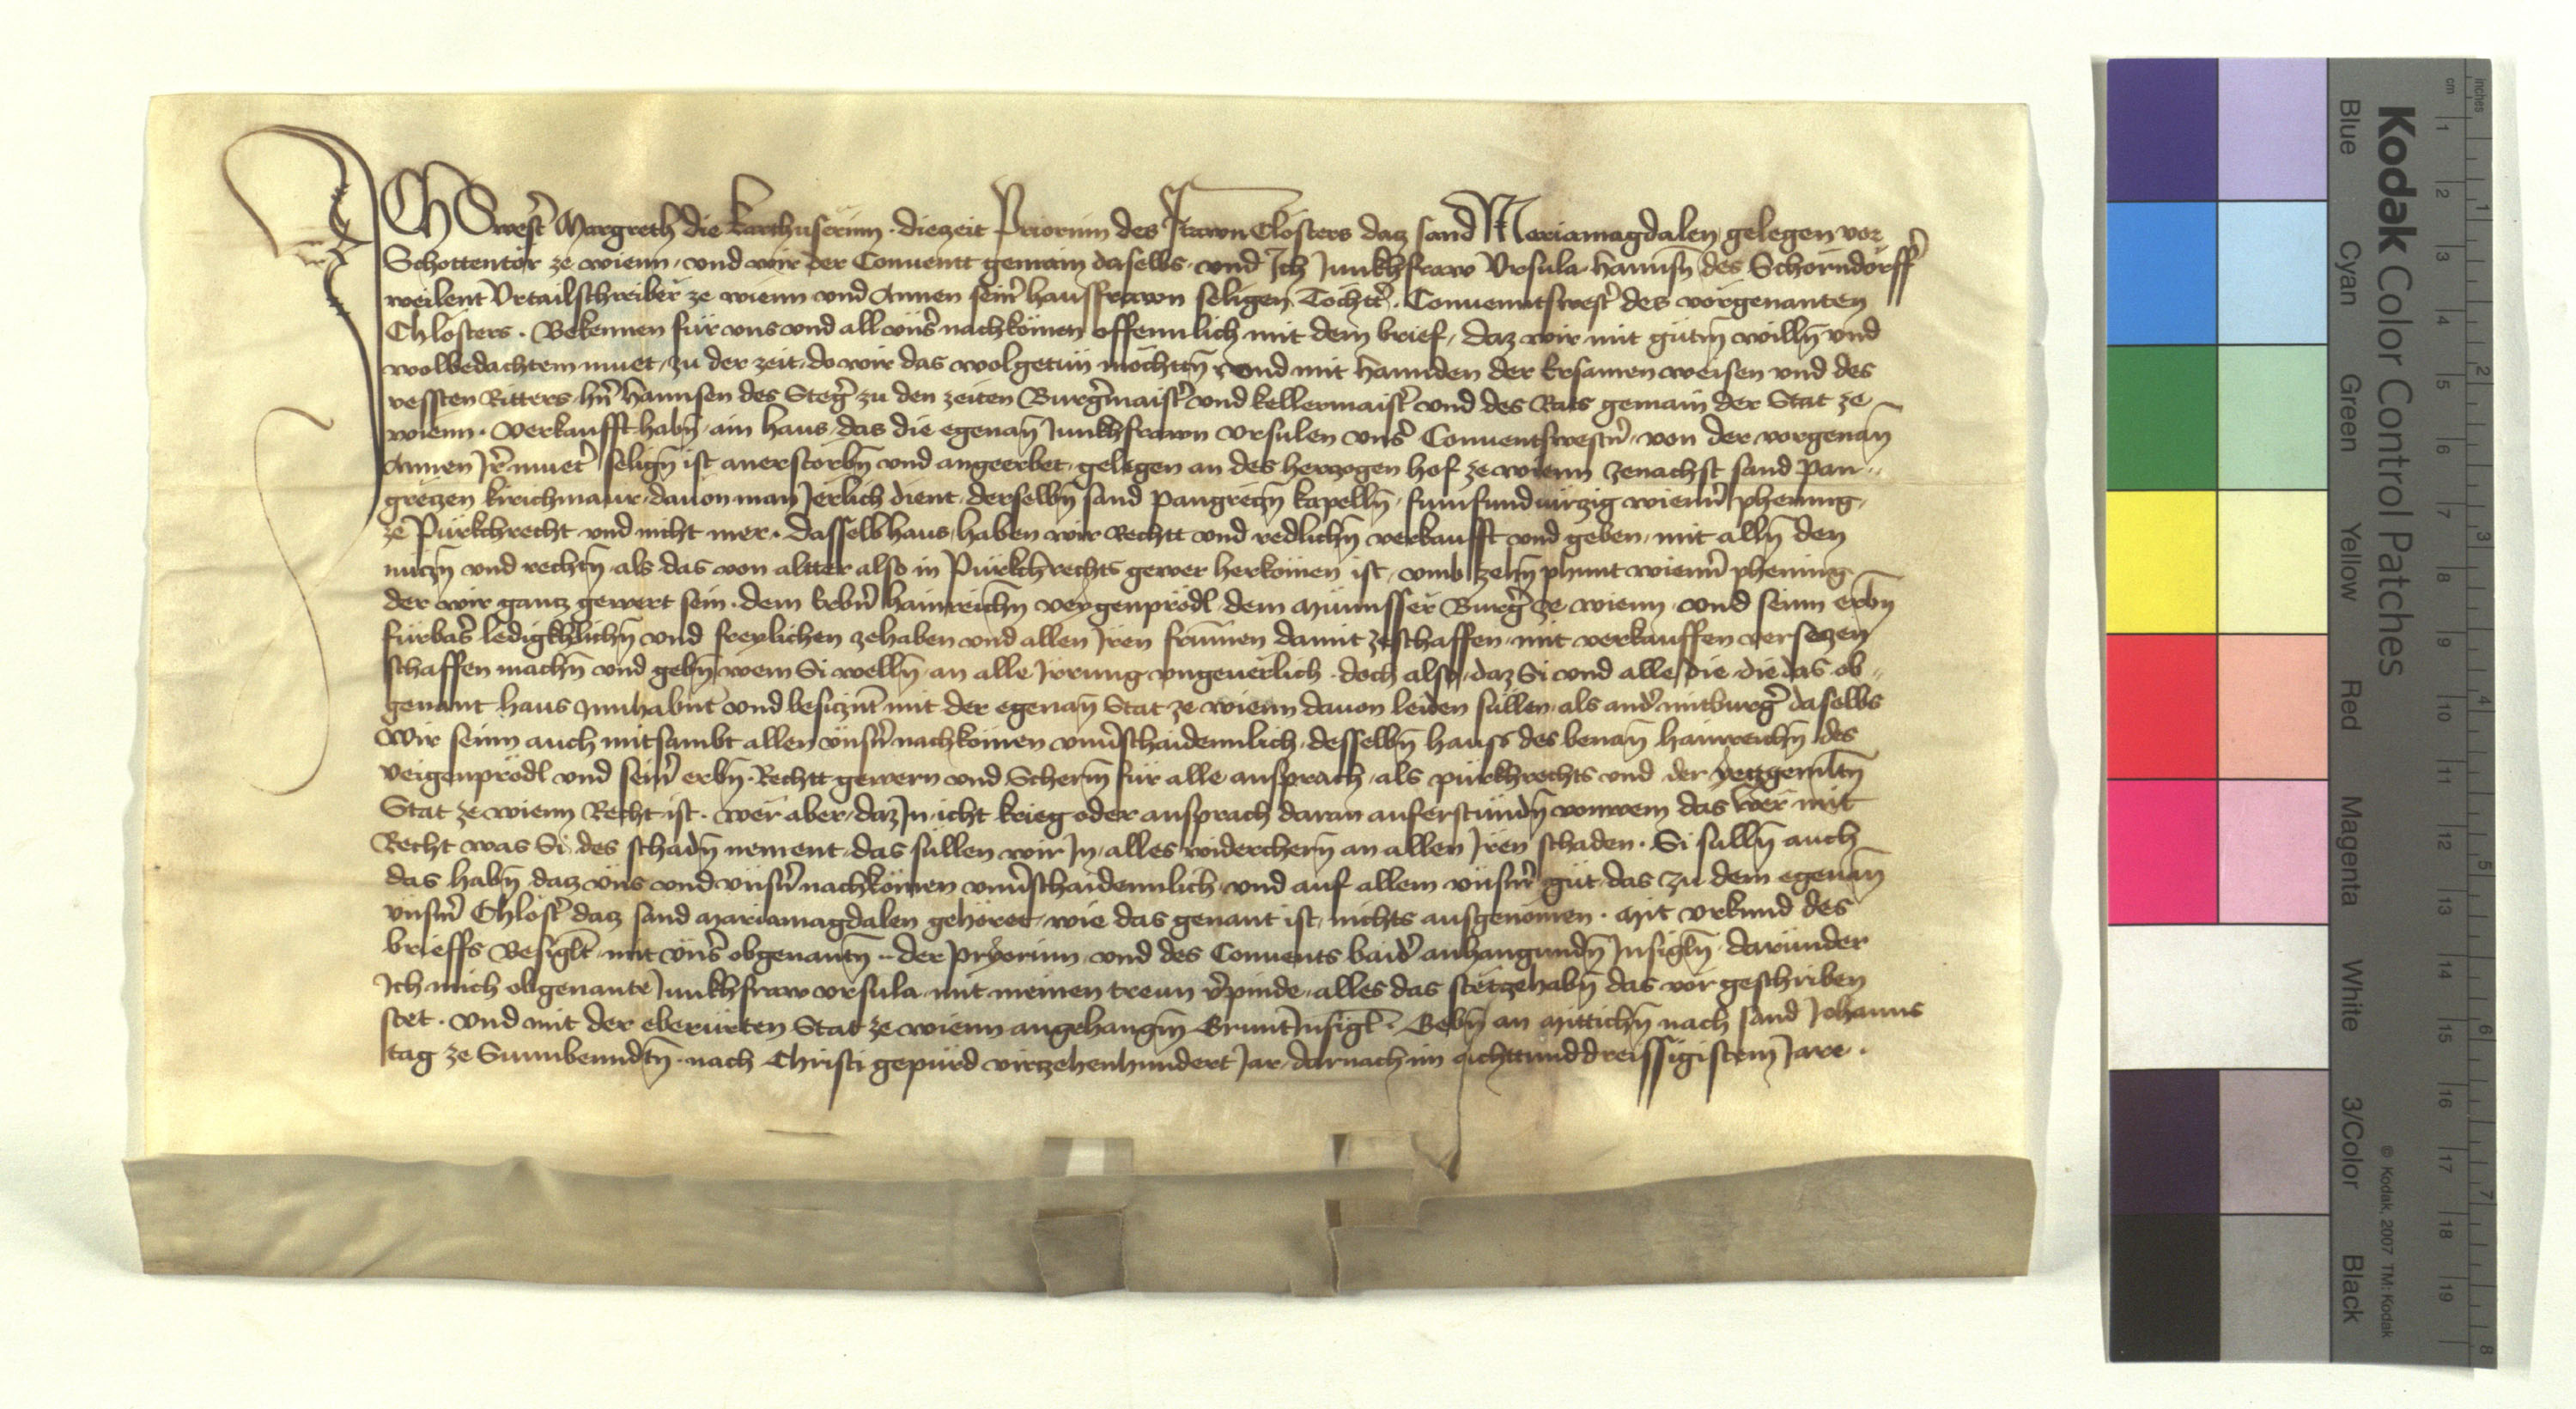 ICh Swest̉ Margreth die karthuserinn · diezeit Priorinn des Frawn Closters daz sand Mariamagdalen gelegen vor
Schottentor ze wienn · vnd wir der Conuentt gemain daselbs · vnd Ich Junkhfraw Vrsula hannsn̄ des Schorndorff̉
weilent Vrtailschreiber ze wienn vnd Annen sein̉ hausfrawn seligen Tochtt̉ · Conuenntswest̉ des vorgenanten
Chlosters · Bekennen für vns vnd all vns̉ nachkömen offennlich mit dem brief · daz wir mit gütm̄ willn̄ vnd
wolbedachtem muet · zu der zeit · do wir das wolgetun mochttn̄ · vnd mit hannden der Ersamen weisen vnd des
vessten Ritters · hn̉ hannsen des Steg̉ zu den zeiten Burg̉maist̉ vnd kellermaist̉ vnd des Rats gemain der Stat ze
wienn · verkaufft habn̄ · ain haus · das die egenan̄ Junkhfrawn vrsulen vns̉ Conuentswestn̉ · von der vorgenan̄
Annen Jr̉ muet̉ selign̄ ist anerstorbn̄ vnd angeerbet · gelegen an des herzogen hof ze wienn zenachst sand pan-
greizen kirichmaur · dauon man Jerlich dient · derselbn̄ sand pangreizn̄ kapelln̄ · funfundvirzig wienn̉ phenning ·
ze Purkchrecht vnd nicht mer · dasselb haus haben wir Rechtt vnd redlichn̄ verkaufft vnd geben · mit alln̄ den
nuczn̄ vnd rechtn̄ · als das von altter also in Purkchrechts gewer herkömen ist · vmb zehn̄ phunt wienn̉ phening
der wir gancz gewert sein · dem Erbn̉ hainreichn̄ veygenprödl · dem Münsser Burg̉ ze wienn · vnd seinn erbn̄
fürbas̉ ledigkhlichn̄ vnd freylichen zehaben vnd allen Jren frumen damit zeschaffen · mit verkauffen verseczen
schaffen machn̄ vnd gebn̄ wem Si welln̄ · an alle Jrrung vngeuerlich · doch also · daz Si vnd alle die · die das ob-
genant haus Innhabnt vnd besicznt mit der egenan̄ Stat ze wienn dauon leiden süllen · als and̉ mitburg̉ daselbs
Wir seinn auch mitsambt allen vnsn̉ nachkömen vnủschaidennlich · desselbn̄ hauss des benan̄ hainreichn̄ des
veigenprödl vnd sein̉ erbn̄ · Rechtt gewern vnd Scherm̄ für alle ansprach · als purkhrechts vnd der yeczgemltn̄
Stat ze wienn Recht ist · wer aber · daz Jn · icht krieg oder ansprach daran auferstündn̄ vonwem das wer mit
Recht was Si des schadn̄ nement · das süllen wir Jn · alles widerchern̄ an allen Jren schaden · Si sulln̄ auch
das habn̄ daz vns vnd vnsn̉ nachkömen vnủschaidennlich vnd auf allem vnsm̉ güt · das zu dem egenan̄
vnsm̉ Chlost̉ daz sand Mariamagdalen gehöret · wie das genant ist · nichts ausgenömen · Mit vrkund des
brieffs Besiglt · mit vns̉ obgenantn̄ ·· der pryorinn vnd des Conuents baid̉ anhangundn̄ Insigln̄ · darunder
Ich mich obgenante Junkhfraw vrsula · mit meinen treun v̉pinde · alles das stetzehabn̄ das vor geschriben
stet · Vnd mit der eberürten Stat ze wienn angehangm̄ GruntInsigl · Gebn̄ an Mittichn̄ nach sand Johanns
tag ze Sunnbenndtn̄ · nach Christi gepurd virzehenhundert Jar · darnach im achttunddreissigistem Jare ·
Kodak Color Control Patches
Blue
Cyan
Green
Yellow
Red
Magenta
White
3/Color
Black
© Kodak, 2007 TM: Kodak
cm 1 2 3 4 5 6 7 8 9 10 11 12 13 14 15 16 17 18 19
inches 1 2 3 4 5 6 7 8